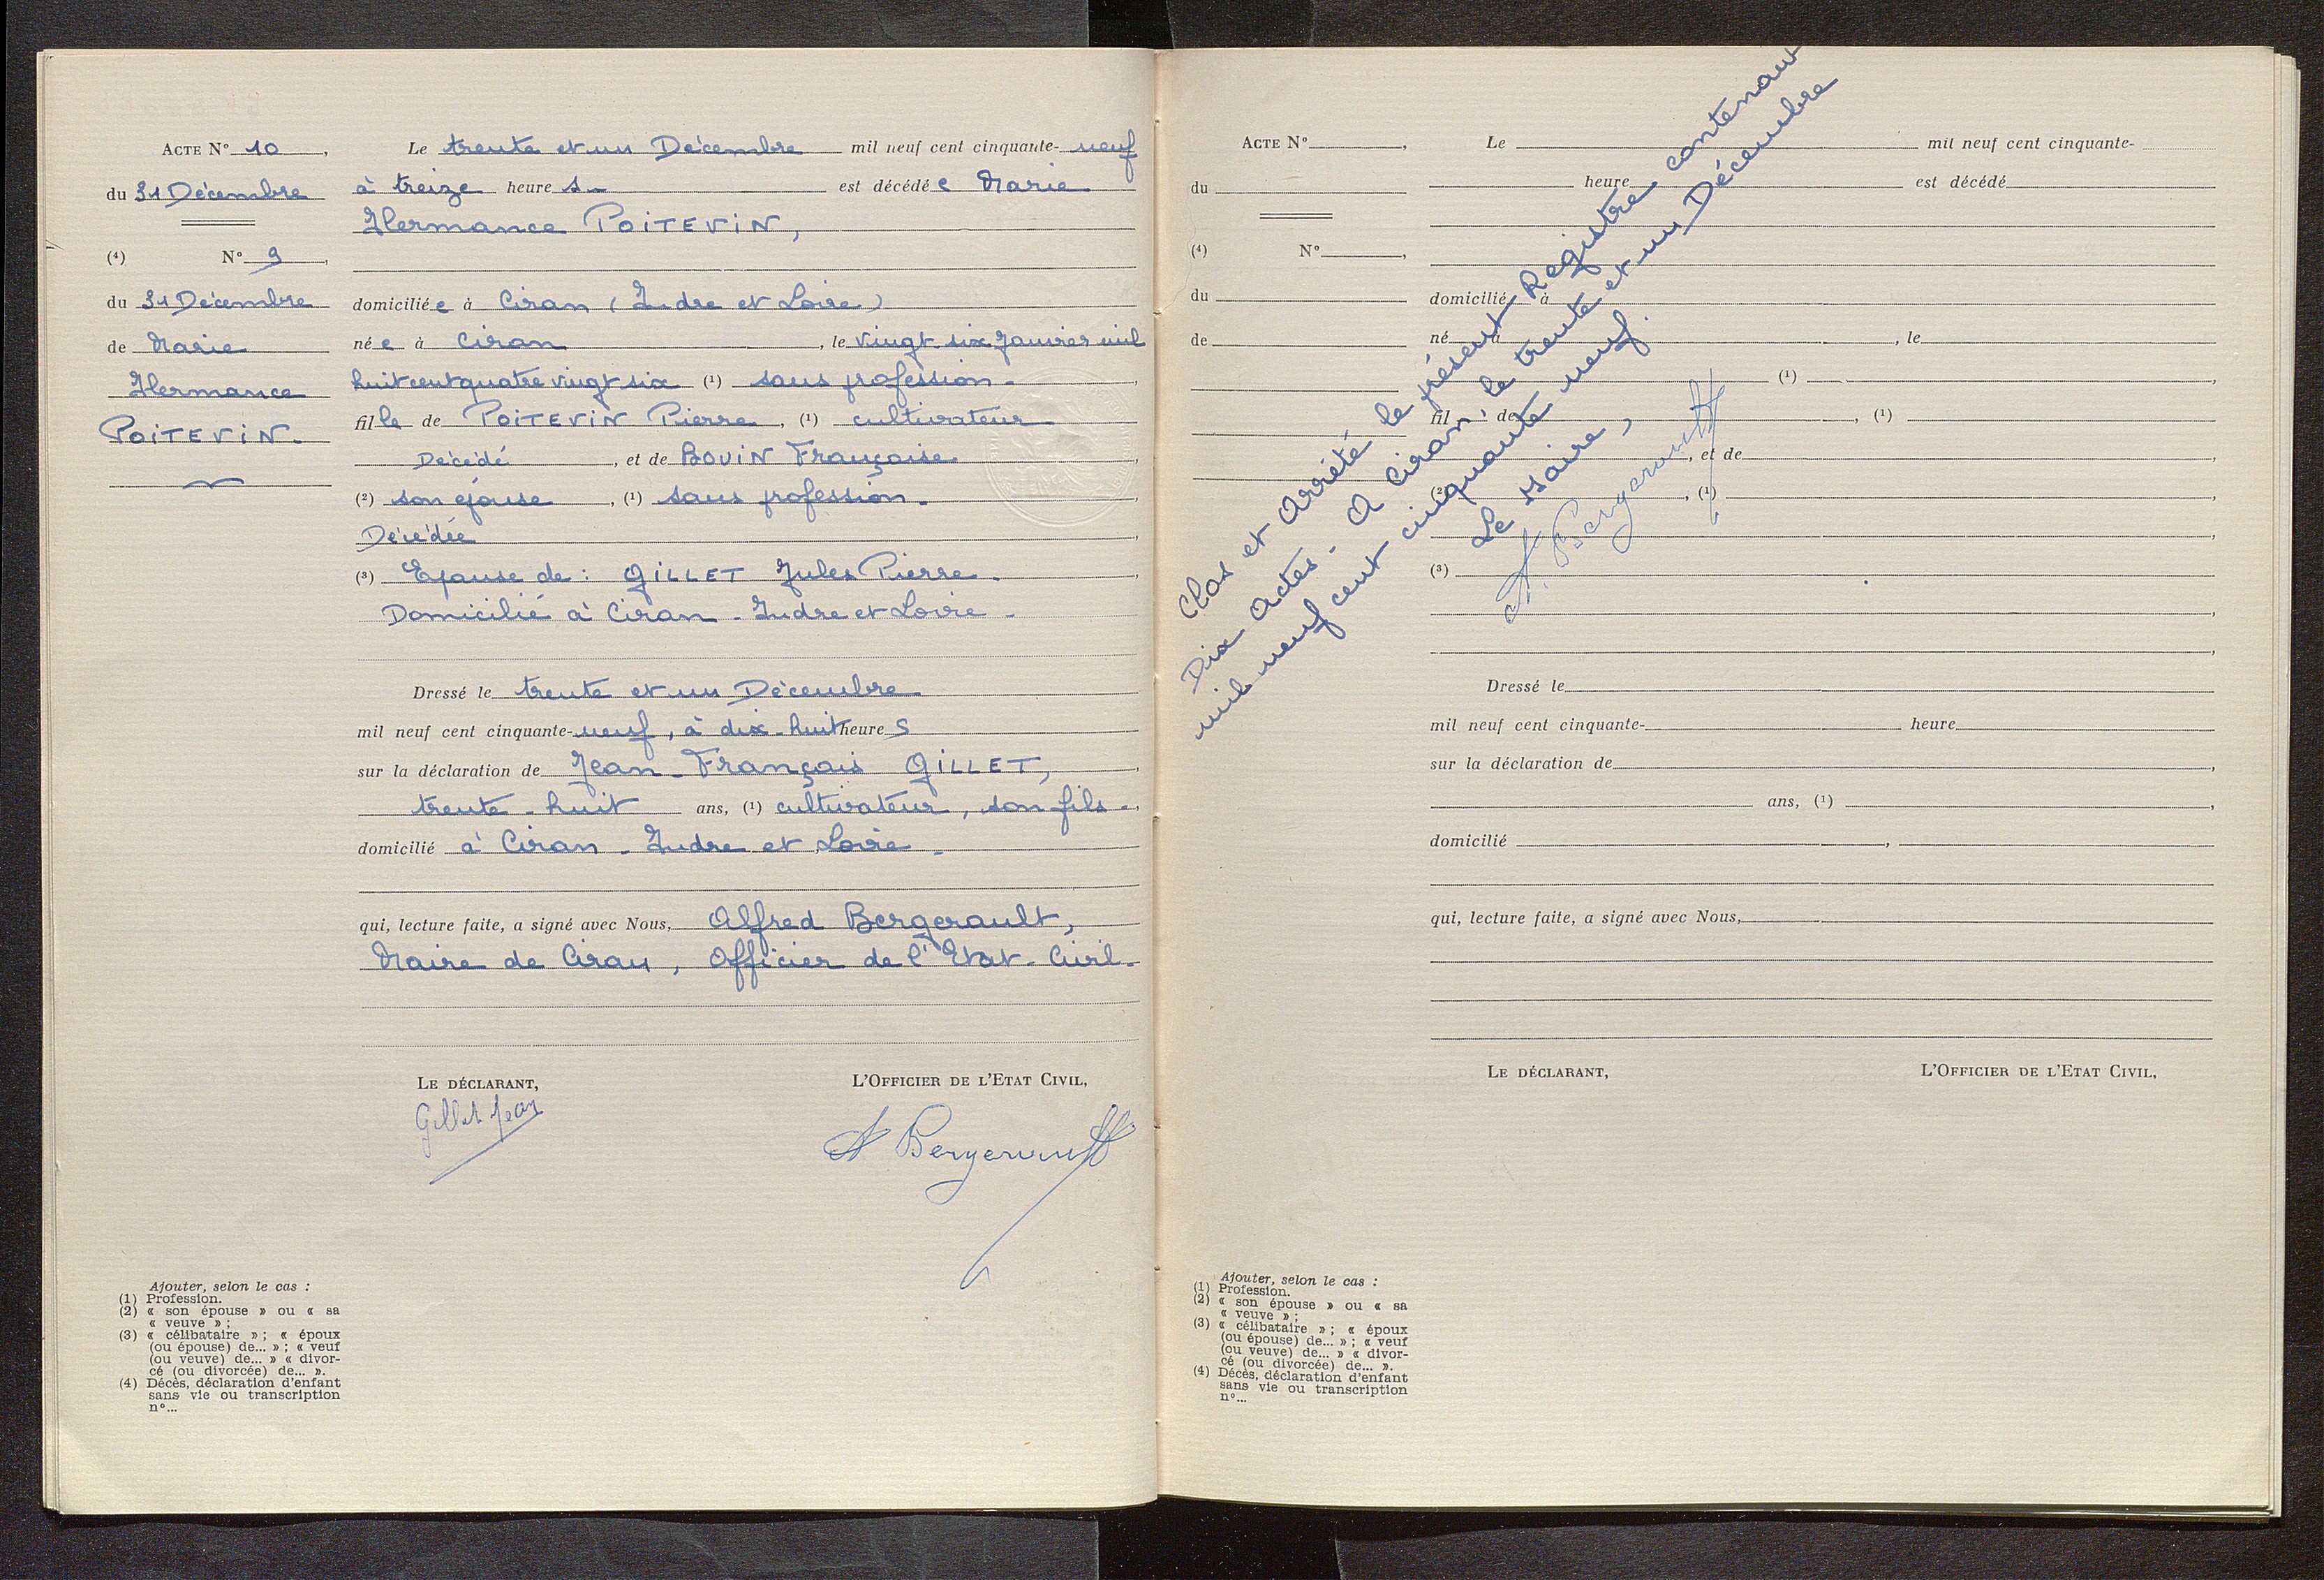 ACTE N° 10,
du 31 Décembre
(4) N° 9,
du 31 Décembre
de Marie
Hermance
POITEVIN.
Le trente et un Décembre mil neuf cent cinquante-neuf
à treize heures est décédée Marie
Hermance POITEVIN,
domiciliée à Ciran (Indre et Loire)
née à Ciran, le vingt six Janvier mil
huit cent quatre vingt six (1) sans profession.
fille de POITEVIN Pierre, (1) cultivateur
Décédé, et de BOUIN Française
(2) son épouse, (1) sans profession.
Décédée
(3) Epouse de : GILLET Jules Pierre.
Domicilié à Ciran - Indre et Loire -
Dressé le trente et un Décembre
mil neuf cent cinquante-neuf, à dix-huit heures
sur la déclaration de Jean-François GILLET,
trente-huit ans, (1) cultivateur, son fils -,
domicilié à Ciran - Indre et Loire -
qui, lecture faite, a signé avec Nous, Alfred Bergerault,
Maire de Ciran, Officier de l'Etat-Civil-
LE DÉCLARANT,
L'OFFICIER DE L'ETAT CIVIL,
Gillet Jean
A Bergerault
Ajouter, selon le cas :
(1) Profession.
(2) « son épouse » ou « sa
« veuve » ;
(3) « célibataire » ; « époux
(ou épouse) de... » ; « veuf
(ou veuve) de... » « divor-
cé (ou divorcée) de... ».
(4) Décès, déclaration d'enfant
sans vie ou transcription
n°...
ACTE N°,
du
(4) N°,
du
de
Le mil neuf cent cinquante-
heure est décédé
domicilié à
né à, le
(1),
fil de, (1)
, et de,
(2), (1),
(3)
Dressé le
mil neuf cent cinquante- heure
sur la déclaration de,
ans, (1),
domicilié,
qui, lecture faite, a signé avec Nous,
Clos et Arrêté le présent Registre contenant
Dix Actes - A Ciran, le trente et un Décembre
mil neuf cent cinquante neuf.
Le Maire,
A. Bergerault
LE DÉCLARANT,
L'OFFICIER DE L'ETAT CIVIL,
Ajouter, selon le cas :
(1) Profession.
(2) « son épouse » ou « sa
« veuve » ;
(3) « célibataire » ; « époux
(ou épouse) de... » ; « veuf
(ou veuve) de... » « divor-
cé (ou divorcée) de... ».
(4) Décès, déclaration d'enfant
sans vie ou transcription
n°...